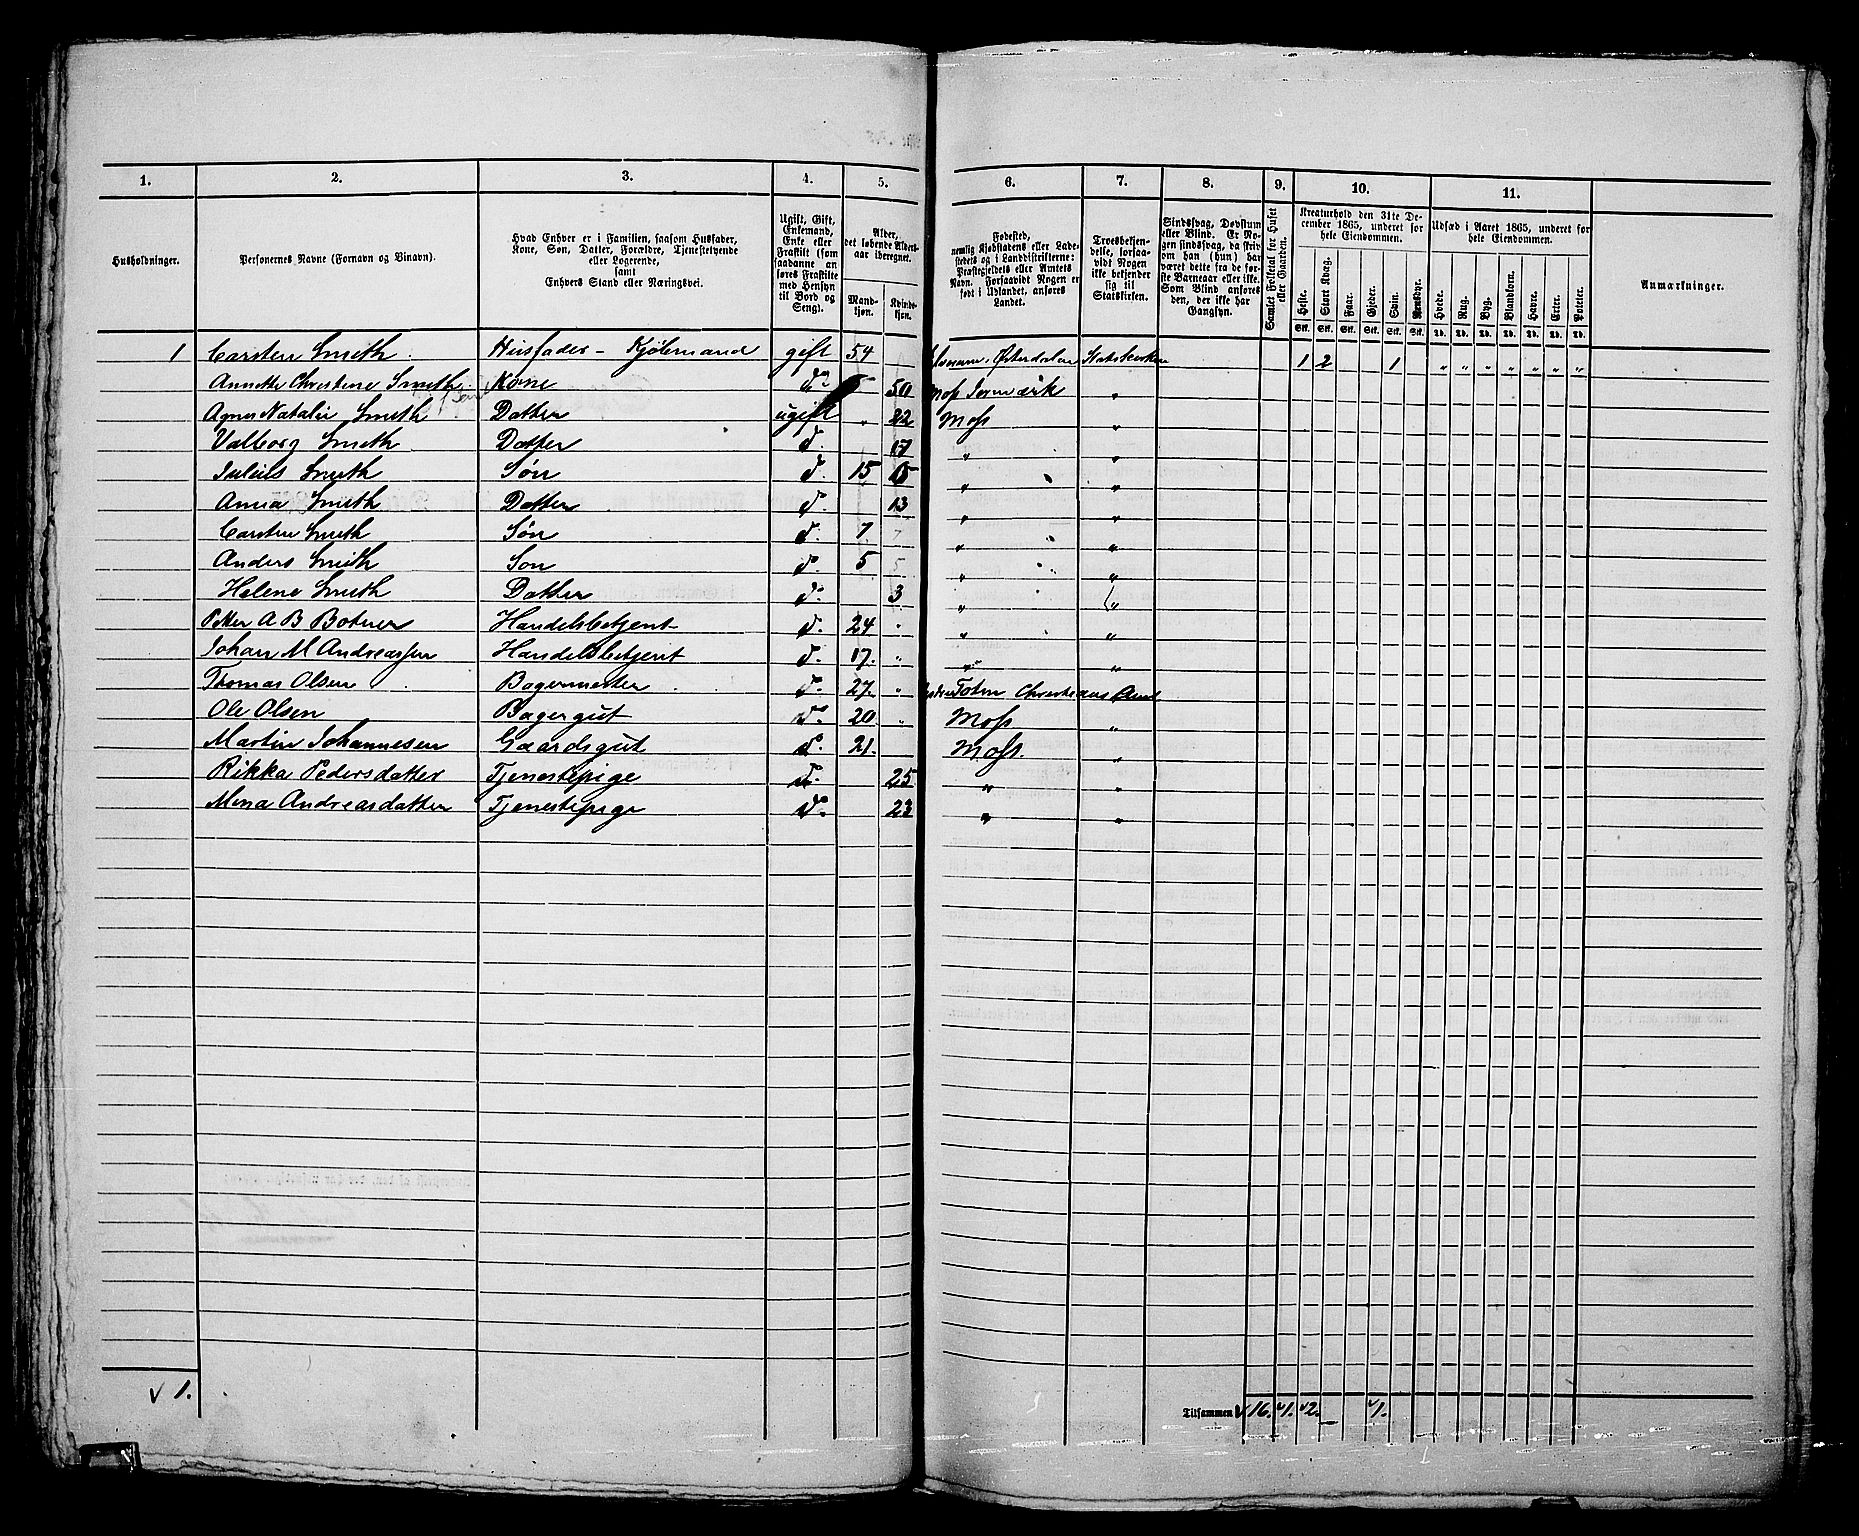 1. 2. 3. 4. 5. 6. 7. 8. 9. 10. 11.
Husholdninger.
Personernes Navne (Fornavn og Binavn).
Hvad Enhver er i Familien, saasom Husfader,
Kone, Søn, Datter, Forældre, Tjenestetyende
eller Logerende,
samt
Enhvers Stand eller Næringsvei.
Ugift, Gift,
Enkemand,
Enke eller
Fraskilt (som
saadanne an
føres Fraskilte
med Hensyn
til Bord og
Seng).
Alder,
det løbende Alders-
aar iberegnet.
Mand-
kjøn.
Kvinde-
kjøn.
Fødested,
nemlig Kjøbstadens eller Lade-
stedets og i Landdistrikterne:
Præstegjeldets eller Amtets
Navn. Forsaavidt Nogen er
født i Udlandet, anføres
Landet.
Troesbekjen-
delse, forsaa-
vidt Nogen
ikke bekjender
sig til
Statskirken.
Sindssvag, Døvstum
eller Blind. Er No-
gen sindssvag, da skriv
om han (hun) har
været dette fra de før-
ste Barneaar eller ikke.
Som Blind anføres
den, der ikke har
Gangsyn.
Samlet Folketal for Huset
eller Gaarden.
Kreaturhold den 31te De-
cember 1865, underet for
hele Eiendommen.
Heste. Stort Kvæg. Faar. Gjeder. Svin. Rensdyr.
Stk. Stk. Stk. Stk. Stk. Stk.
Udsæd i Aaret 1865, underet for
hele Eiendommen.
Hvede. Rug. Byg. Blandkorn. Havre. Erter. Poteter.
Td. Td. Td. Td. Td. Td. Td.
Anmærkninger.
1 Carsten Smith. Husfader - Kjøbmand gift 54 Østerdalen Statskirken 1 2 1 " " " " " " "
Annette Christine Smith. Kone do 50 Moss
Agnes Natalie Smith Datter ugift " 22 Moss "
Valborg Smith Datter d. 17 " "
Julius Smith Søn d. 15 15 " "
Anna Smith Datter d. 13 " "
Carsten Smith Søn d. 7 7 " "
Anders Smith Søn d. 5 5 " "
Helene Smith Datter d. 3 " "
Petter A B Botner Handelsbetjent d. 24 " " "
Johan M Andreassen Handelsbetjent d. 17. " " "
Thomas Olsen Bagermester d. 27. " Toten Christians Amt
Ole Olsen Bagergut d. 20 " Moss "
Martin Johannesen Gaardsgut d. 21. Moss. "
Rikka Pedersdatter Tjenestepige d. 25 " "
Mina Andreasdatter Tjenestepige d. 23 " "
√ 1.
Tilsammen √ 16. √1. √2. — √1.